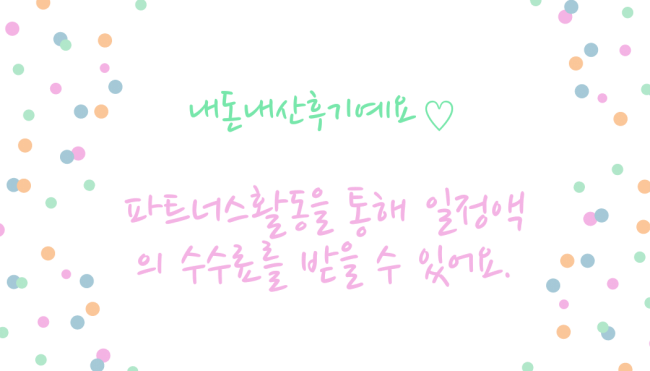 내돈내산후기예요 ♡
파트너스활동을 통해 일정액
의 수수료를 받을 수 있어요.